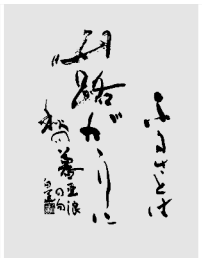 ふるさとは
山路がゝりに
秋の暮
亜浪
の句